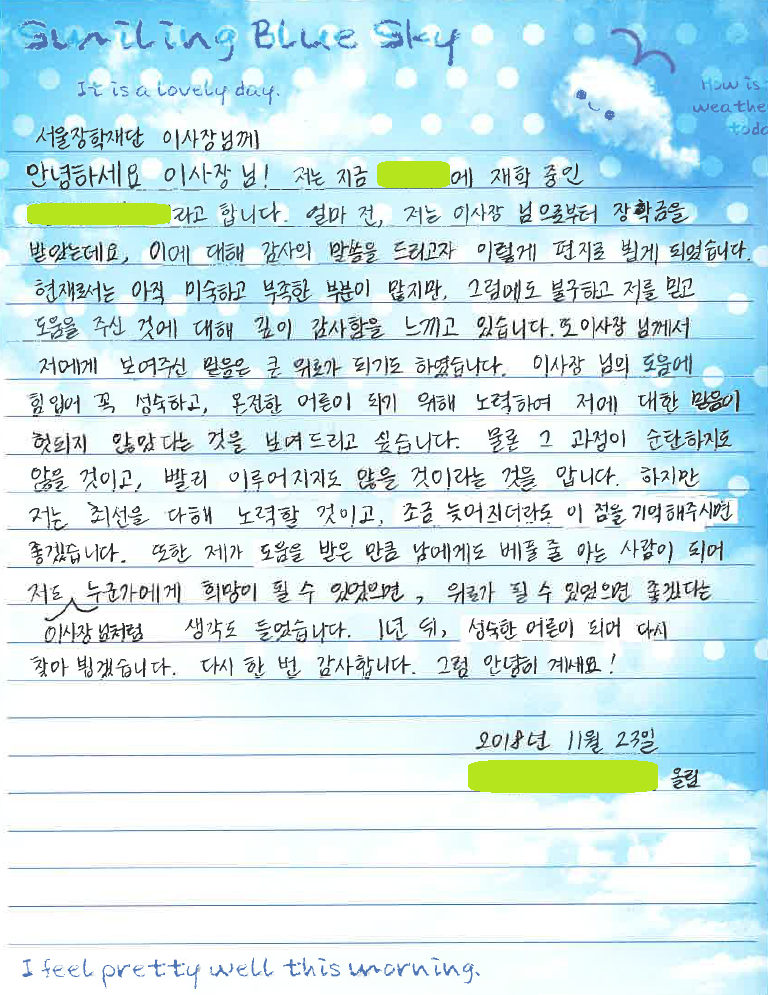 Smiling Blue Sky
It is a lovely day.
How is
weathe
toda
서울장학재단 이사장님께
안녕하세요 이사장 님! 저는 지금 에 재학 중인
라고 합니다. 얼마 전, 저는 이사장 님으로부터 장학금을
받았는데요, 이에 대해 감사의 말씀을 드리고자 이렇게 편지로 뵙게 되었습니다.
현재로서는 아직 미숙하고 부족한 부분이 많지만, 그럼에도 불구하고 저를 믿고
도움을 주신 것에 대해 깊이 감사함을 느끼고 있습니다. 또 이사장 님께서
저에게 보여주신 믿음은 큰 위로가 되기도 하였습니다. 이사장 님의 도움에
힘입어 꼭 성숙하고, 온전한 어른이 되기 위해 노력하여 저에 대한 믿음이
헛되지 않았다는 것을 보여드리고 싶습니다. 물론 그 과정이 순탄하지도
않을 것이고, 빨리 이루어지지도 않을 것이라는 것을 압니다. 하지만
저는 최선을 다해 노력할 것이고, 조금 늦어지더라도 이 점을 기억해주시면
좋겠습니다. 또한 제가 도움을 받은 만큼 남에게도 베풀 줄 아는 사람이 되어
저도 누군가에게 희망이 될 수 있었으면, 위로가 될 수 있었으면 좋겠다는
이사장 님처럼 생각도 들었습니다. 1년 뒤, 성숙한 어른이 되어 다시
찾아 뵙겠습니다. 다시 한 번 감사합니다. 그럼 안녕히 계세요!
2018년 11월 23일
올림
I feel pretty well this morning.